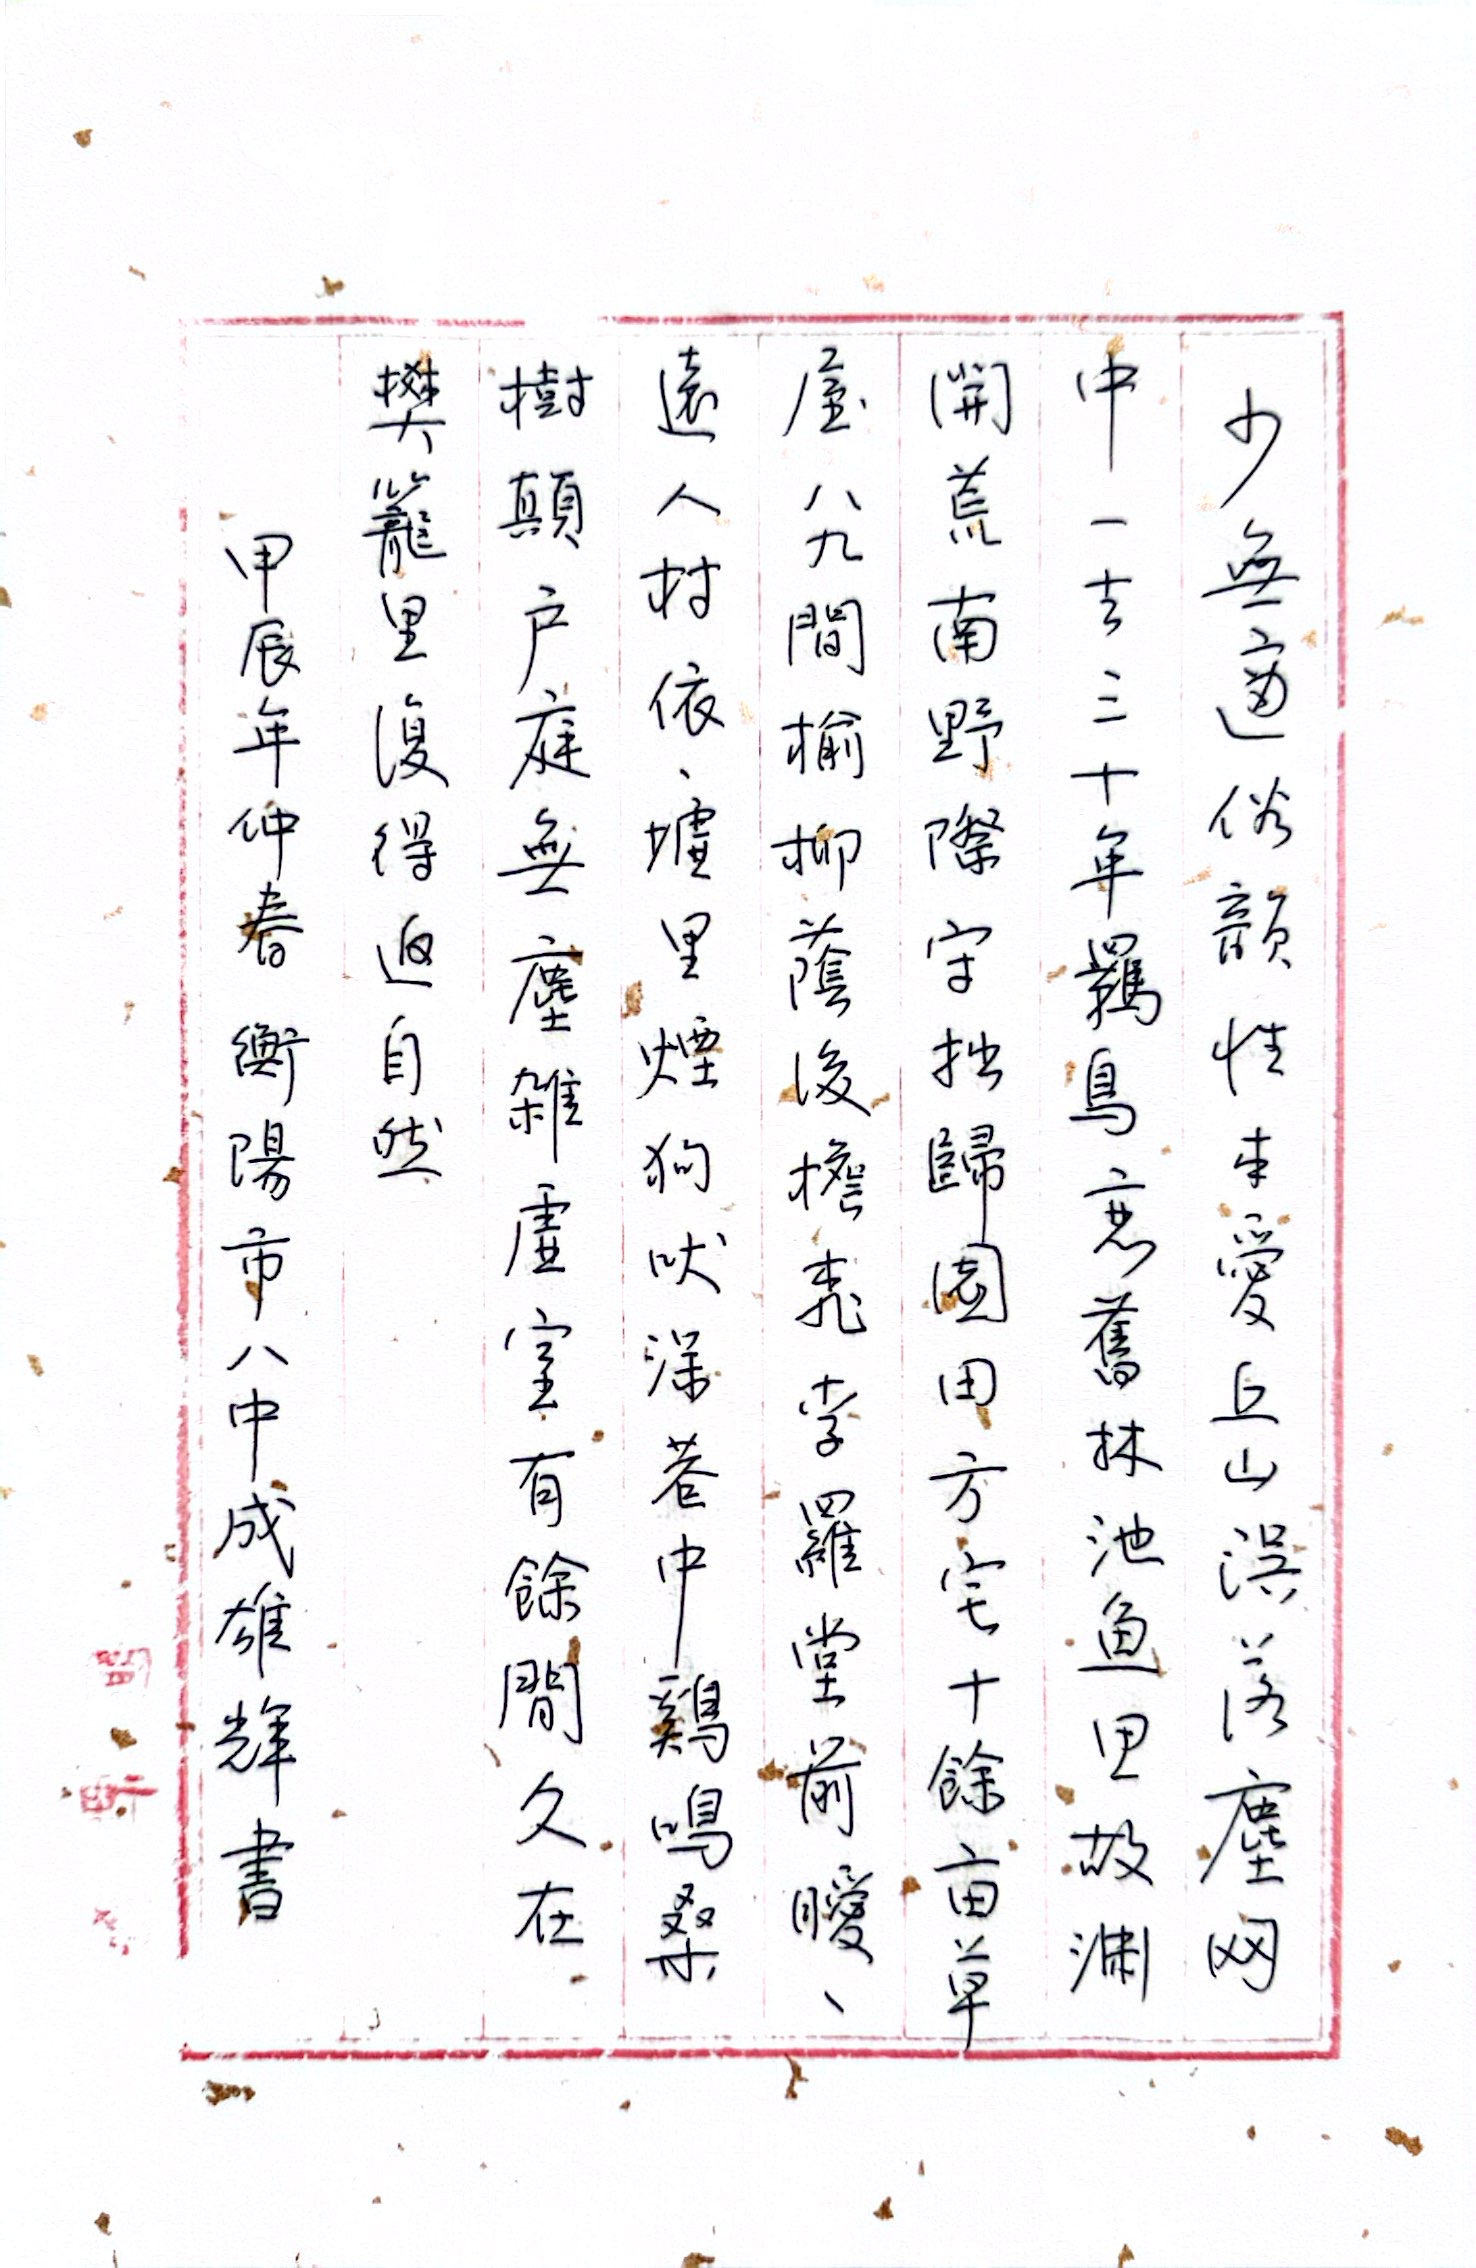 少無適俗韻性本愛丘山误落塵网
中一去三十年羈鳥恋舊林池鱼思故渊
開荒南野際守拙歸園田方宅十餘亩草
屋八九間榆柳蔭後檐桃李羅堂前曖、
遠人村依、墟里煙狗吠深巷中鷄鳴桑
樹顛户庭無塵雜虚室有餘閒久在
樊籠里復得返自然
甲辰年仲春衡陽市八中成雄輝書